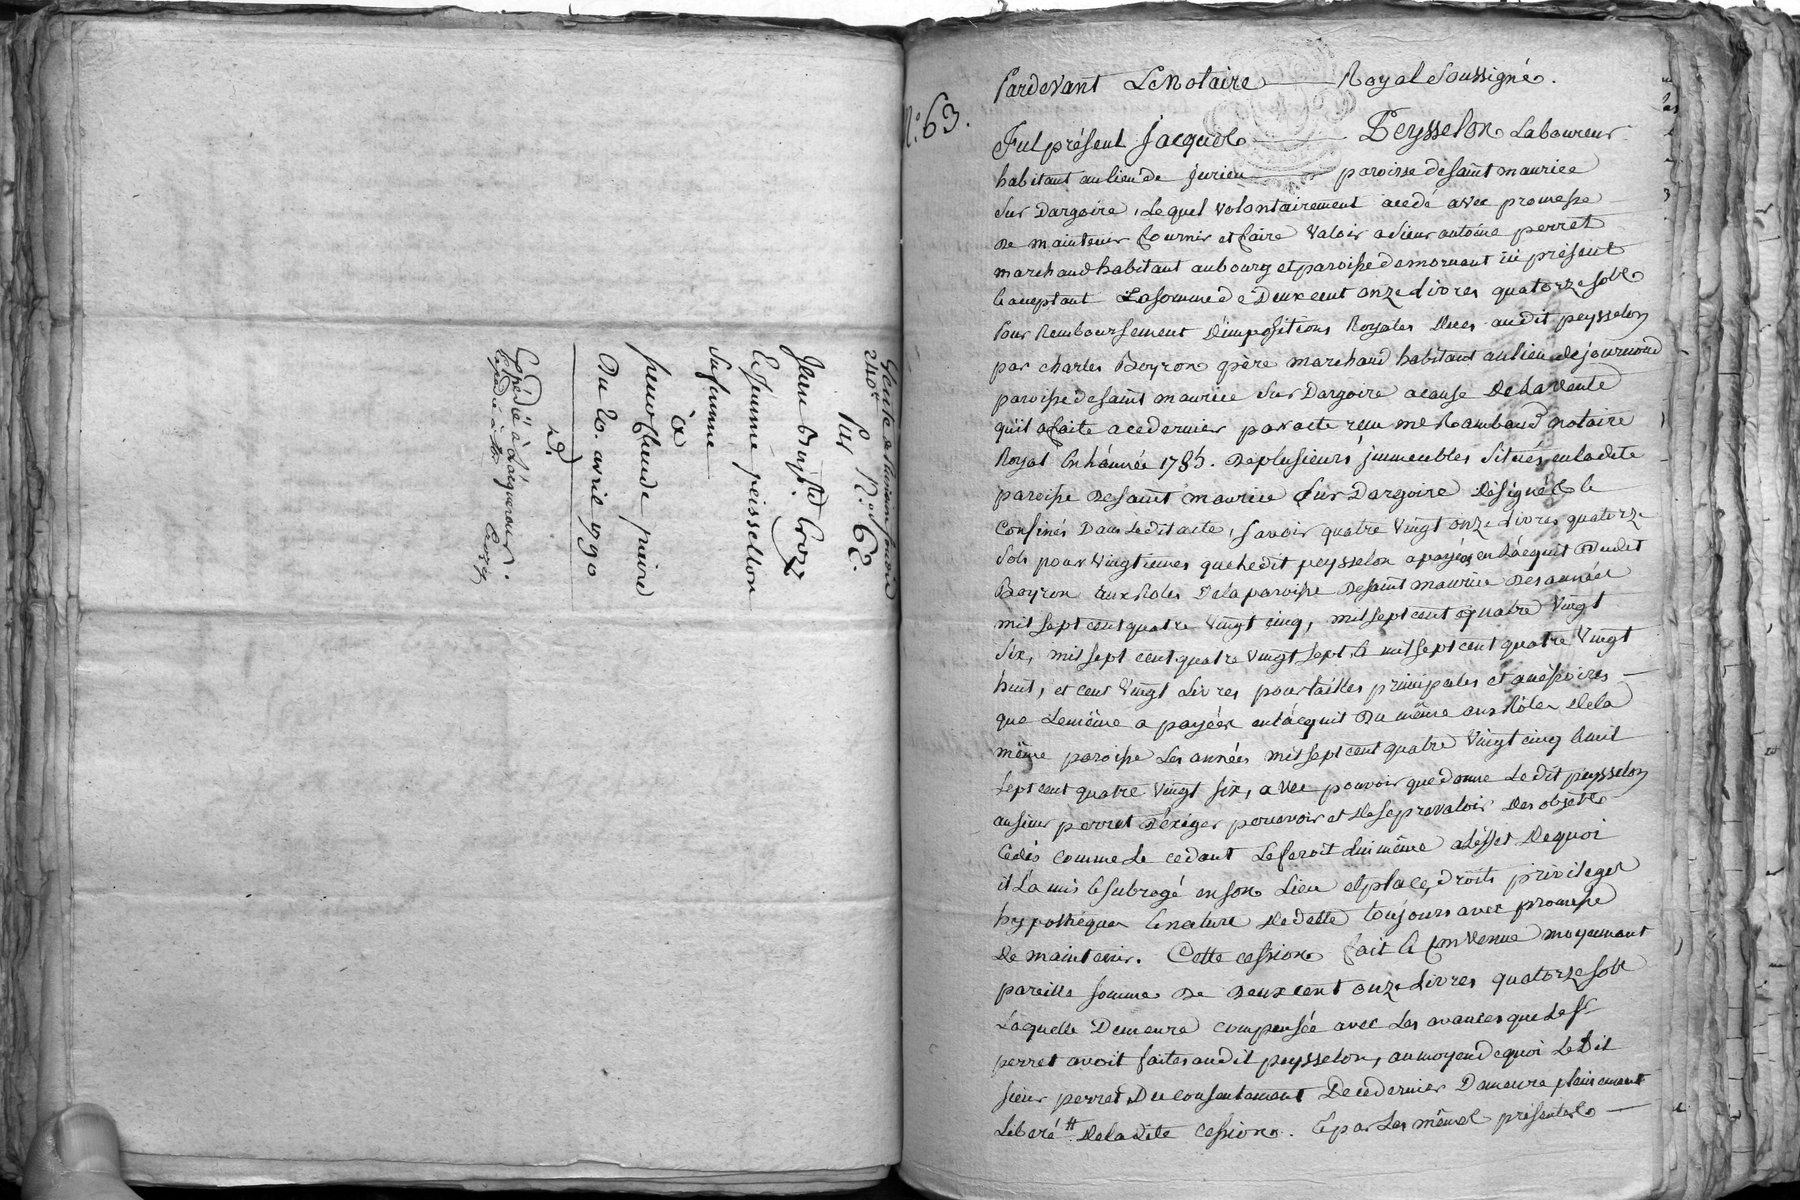 Vente & Pension fonciere
240#
N.° 62.
Par
Jean Bap.te Croz
Et Jeanne peissellon
sa femme
à
pierre claude
Du 20. avril 1790
Expédié à L'acquereur.
N.° 63.
Pardevant Le Notaire Royal Soussigné.
Fut présent Jacques Peysselon Laboureur
habitant au lieu de Jurieu paroisse de saint maurice
sur Dargoire, Lequel volontairement a cedé avec promesse
De maintenir fournir et faire valoir a sieur antoine perret
marchand habitant au bourg et paroisse de mornant ici présent
& acceptant La somme de Deux cent onze Livres quatorze sols
Pour Remboursement D'impositions Royales Dües au dit peysselon
par charles Boyron père marchand habitant au lieu de journoud
paroisse de saint maurice sur Dargoire a cause De La vente
qu'il a faite a ce dernier par acte reçu me Rambaud notaire
Royal En L'année 1785. De plusieurs jmmeubles Situés en ladite
paroisse De saint maurice sur Dargoire Désignés &
Confinés Dans Ledit acte, savoir quatre vingt onze Livres quatorze
Sols pour vingtiemes que Ledit peysselon a payés en L'acquit Dudit
Boyron aux Roles De la paroisse De saint maurice Des années
mil sept cent quatre vingt cinq, mil sept cent quatre vingt
Six, mil sept cent quatre vingt sept & mil sept cent quatre vingt
huit, et cent vingt Livres pour tailles principales et accessoires
que Le même a payées en L'acquit Du même aux Rôles De la
même paroisse Les années mil sept cent quatre vingt cinq & mil
Sept cent quatre vingt six, avec pouvoir que donne Le dit peysselon
au sieur perret D'éxiger percevoir et De se prevaloir Des objets
Cedés comme Le cedant Le feroit Lui même a L'effet De quoi
il L'a mis & subrogé en son Lieu et place, droits privileges
hypothèques & nature De dette toujours avec promesse
De maintenir. Cette cession fait & convenue moyennant
pareille somme De Deux cent onze Livres quatorze sols
Laquelle Demeure compensée avec Les avances que Le Sr
perret avoit faites au dit peysselon, au moyen de quoi Ledit
sieur perret Du consentement De ce dernier Demeure plainement
Liberé # De la dite cession. & par Les mêmes présentes